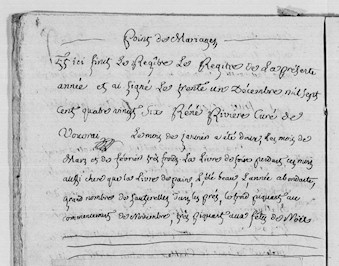 Point de Mariages
Et ici finit Le Regitre Le Regitre de La présente
année et ai signé Le trente un Décembre mil sept
Cent quatre vingt Six Réné Rivière Curé de
Vouvrai Le mois de janvier a été doux, les mois de
Mars et de février très froids La Livre de foire pendant ces mois
aussi chere que La Livre de pain, L'été beau L'année abondante,
grand nombre de Sauterelles dans les prés, le froid piquant au
commencement de Novembre, très piquant aux fêtes de Noël